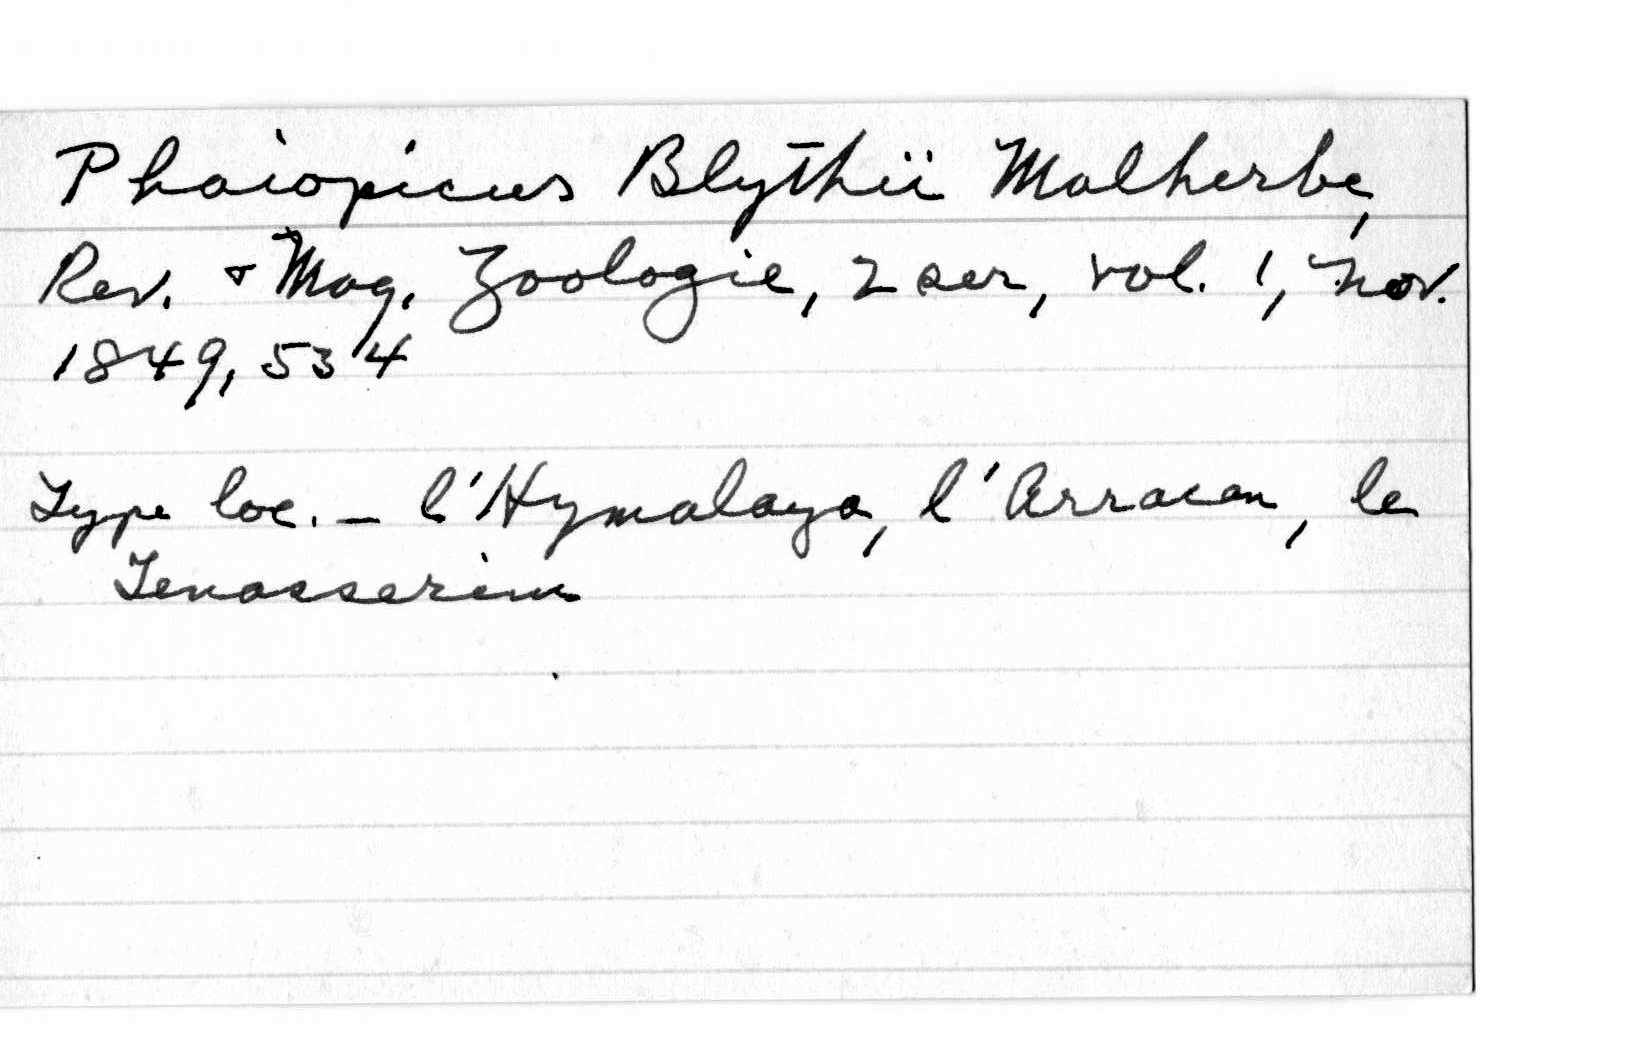 Phaiopicus Blythii Malherbe,
Rev. & Mag. Zoologie, 2 ser, vol. 1, Nov.
1849, 534
Type loc. - l'Hymalaya, l'Arracan, le
Tenasserim